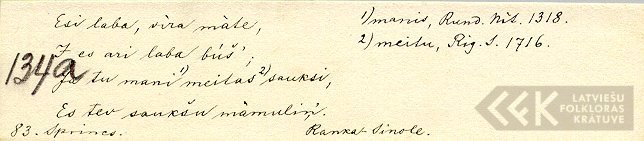 Esi laba, vīra māte,
I es ari laba būš';
134a
Ja tu mani¹) meitas²) sauksi,
Es tev saukšu māmuliņ'.
83. Sprincs.
Ranka Sinole.
1) manis, Rund. Nīt. 1318.
2) meitu, Rig. J. 1716.
LATVIEŠU
FOLKLORAS
KRĀTUVE